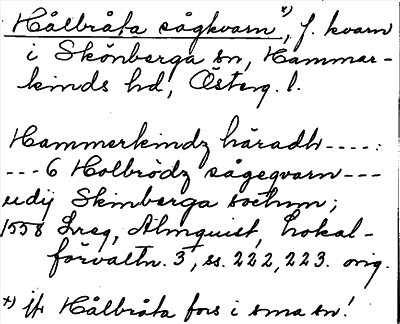 Hålbråta sågkvarn *), f. kvarn
i Skönberga sn, Hammar-
kinds hd, Österg. l.
Hammerkindz häradh ----:
--- 6 Holbrödz sågeqvarn ---
udij Skinberga sochnn;
1558 Lreg, Almquist, Lokal-
förvaltn. 3, ss. 222, 223. orig.
*) jfr Hålbråta fors i sma sn!